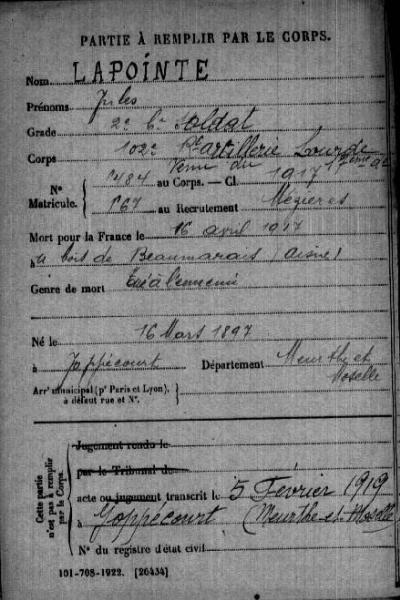 PARTIE À REMPLIR PAR LE CORPS.
Nom LAPOINTE
Prénoms Jules
Grade 2e Cr Soldat
Corps 102e Rt artillerie Lourde
Venu du 17eme
N° 484 au Corps. — Cl. 1917
Matricule. 67 au Recrutement Mézières
Mort pour la France le 16 avril 1917
au bois de Beaumarais (Aisne)
Genre de mort Tué à l'ennemi
Né le 16 Mars 1897
à Joppécourt Département Meurthe et Moselle
Arrt municipal (pr Paris et Lyon),
à défaut rue et N°.
Cette partie
n'est pas à remplir
par le Corps.
Jugement rendu le
par le Tribunal de
acte ou jugement transcrit le 5 Février 1919
à Joppécourt (Meurthe-et-Moselle)
N° du registre d'état civil
101-708-1922. [26434]